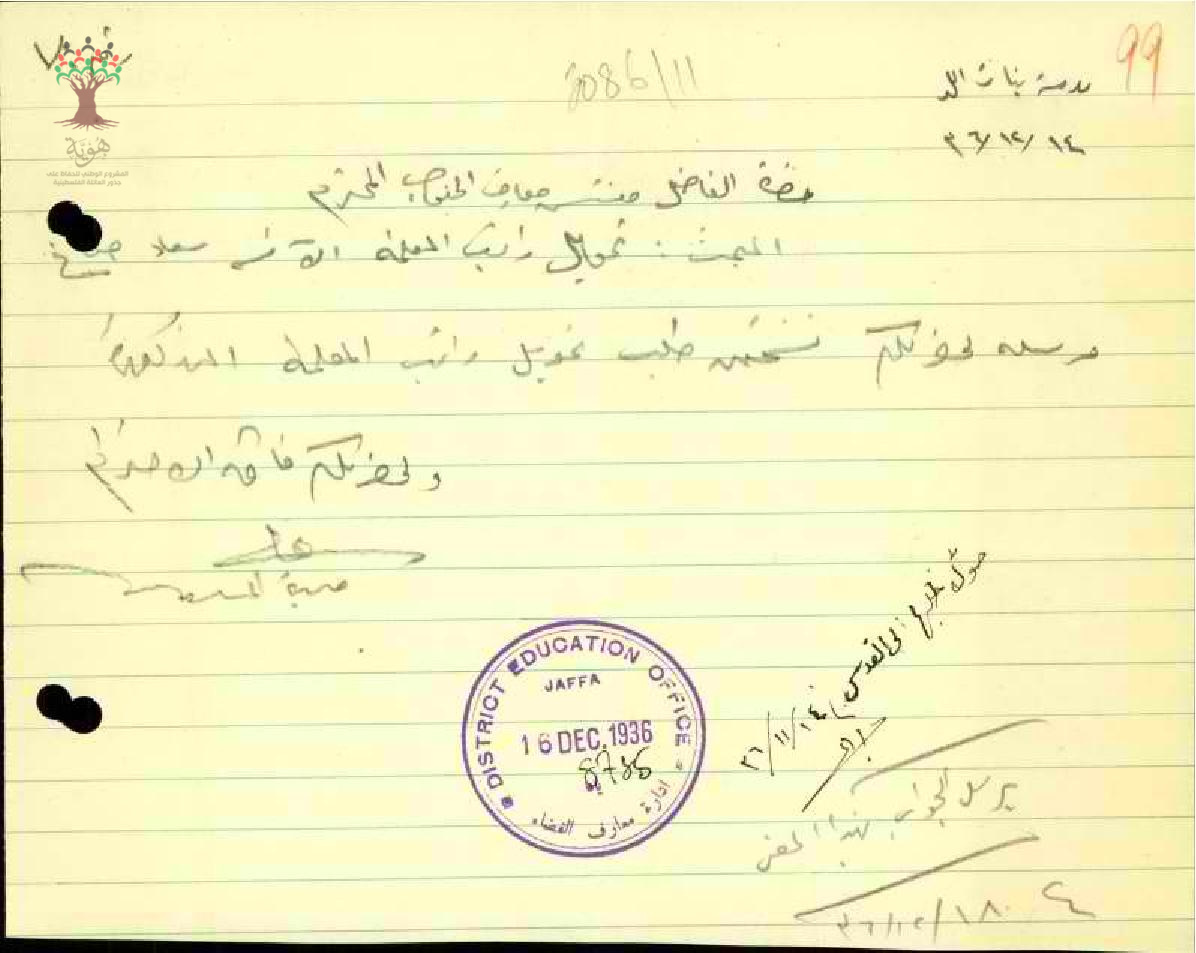 99
2086/11
مدرسة بنات اللد
٣٦/١٢/١٤
هوية
المشروع الوطني للحفاظ على
جذور العائلة الفلسطينية
حضرة الفاضل مفتش معارف الجنوب المحترم
المبحث : تحويل راتب المعلمة الآنسة سعاد
مرسله لحضرتكم طلب تحويل راتب المعلمة المذكورة
ولحضرتكم فائق الاحترام
مديرة المدرسة
حول طلبها الى القدس
٣٦/١١/٢٤
DISTRICT EDUCATION OFFICE
JAFFA
16 DEC. 1936
8785
ادارة معارف القضاء
يرسل الجواب بهذا المعنى
٣٦/١٢/١٨